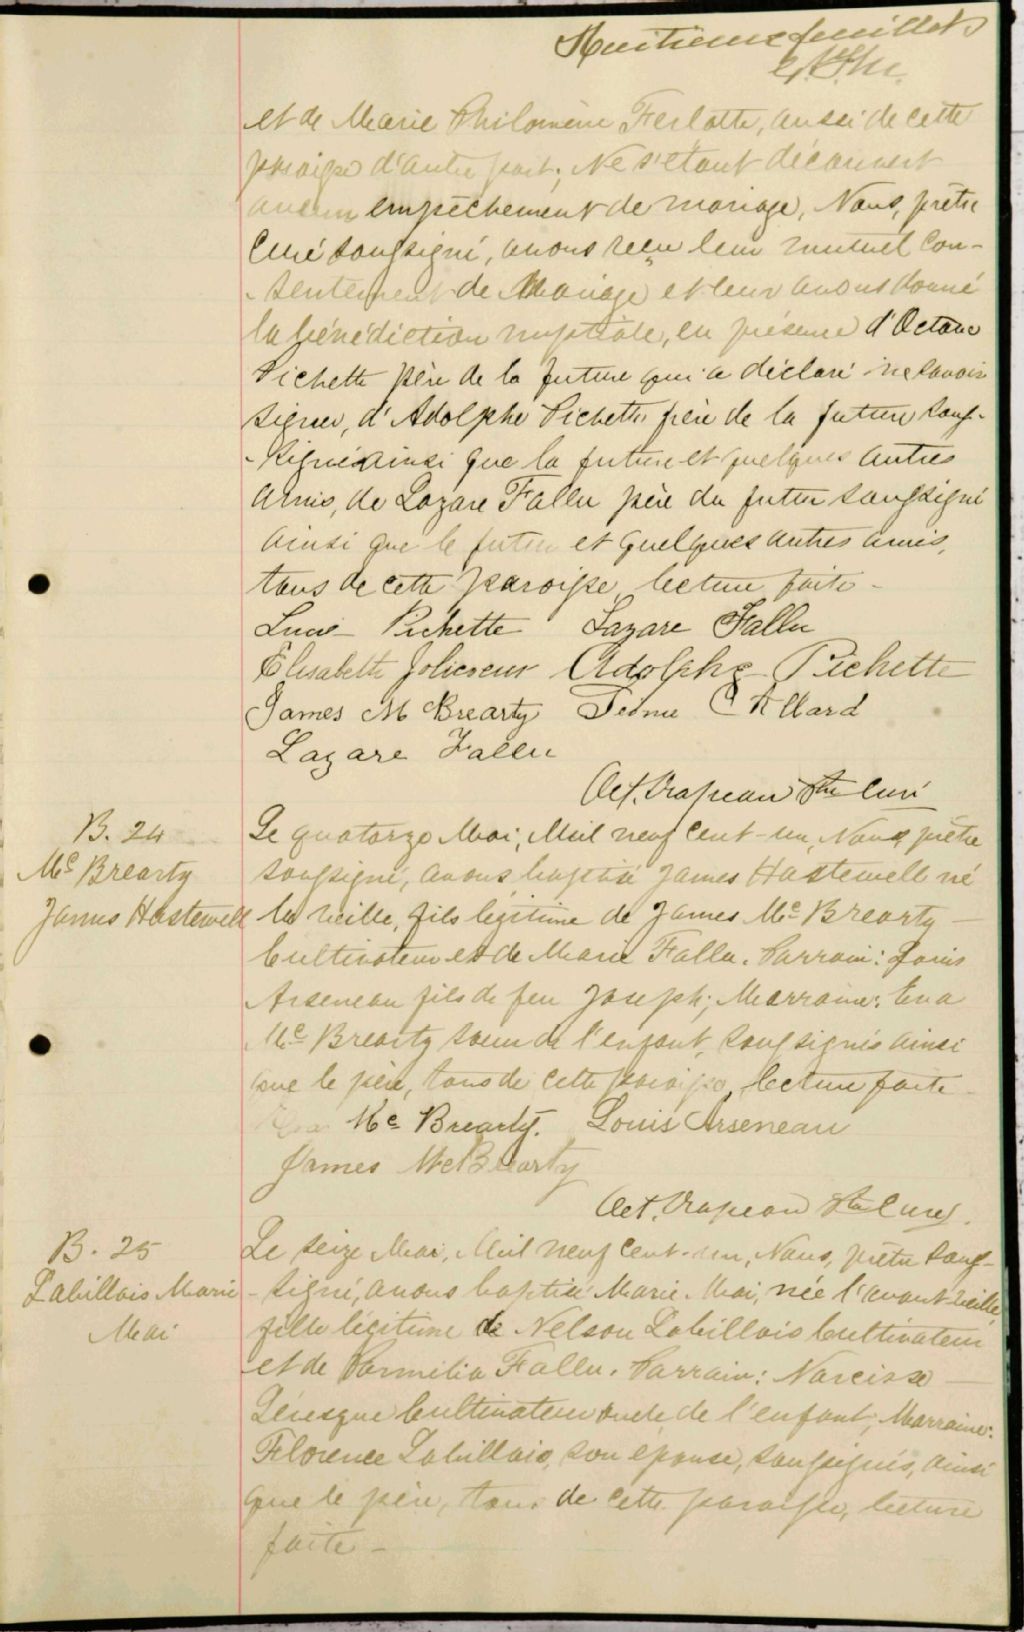 Huitième feuillet
et de Marie Philomène Ferlatte, aussi de cette
paroisse d'autre part; Ne s'étant découvert
aucun empêchement de mariage, Nous, prêtre
Curé soussigné, avons reçu leur mutuel con-
-sentement de Mariage et leur avons donné
la bénédiction nuptiale, en présence d'Octave
Pichette père de la future qui a déclaré ne savoir
signer, d'Adolphe Pichette frère de la future sous-
-signé ainsi que la future et quelques autres
amis, de Lazare Fallu père du futur soussigné
ainsi que le futur et quelques autres amis,
tous de cette paroisse, lecture faite -
Pichette Lazare Fallu
Elisabeth Jolicoeur Adolphe Pichette
James Mc Brearty Allard
Lazare Fallu
Oct. Drapeau Ptre Curé
B. 24
Mc Brearty
James Hastewell
Le quatorze Mai, Mil neuf cent-un, Nous prêtre
soussigné, avons baptisé James Hastewell né
la veille, fils légitime de James Mc Brearty
Cultivateur et de Marie Fallu. Parrain: Louis
Arseneau fils de feu Joseph; Marraine: Eva
Mc Brearty soeur de l'enfant, soussignés ainsi
que le père, tous de cette paroisse, lecture faite
Eva Mc Brearty. Louis Arseneau
James McBrearty
Oct. Drapeau Ptre Curé.
B. 25
Labillois Marie
Mai
Le seize Mai, Mil neuf cent-un, Nous, prêtre sous-
-signé, avons baptisé Marie Mai, née l'avant-veille,
fille légitime de Nelson Labillois Cultivateur
et de Parmélia Fallu. Parrain: Narcisse
Lévesque Cultivateur oncle de l'enfant; Marraine:
Florence Labillois, son épouse, soussignés, ainsi
que le père, tous de cette paroisse, lecture
faite -